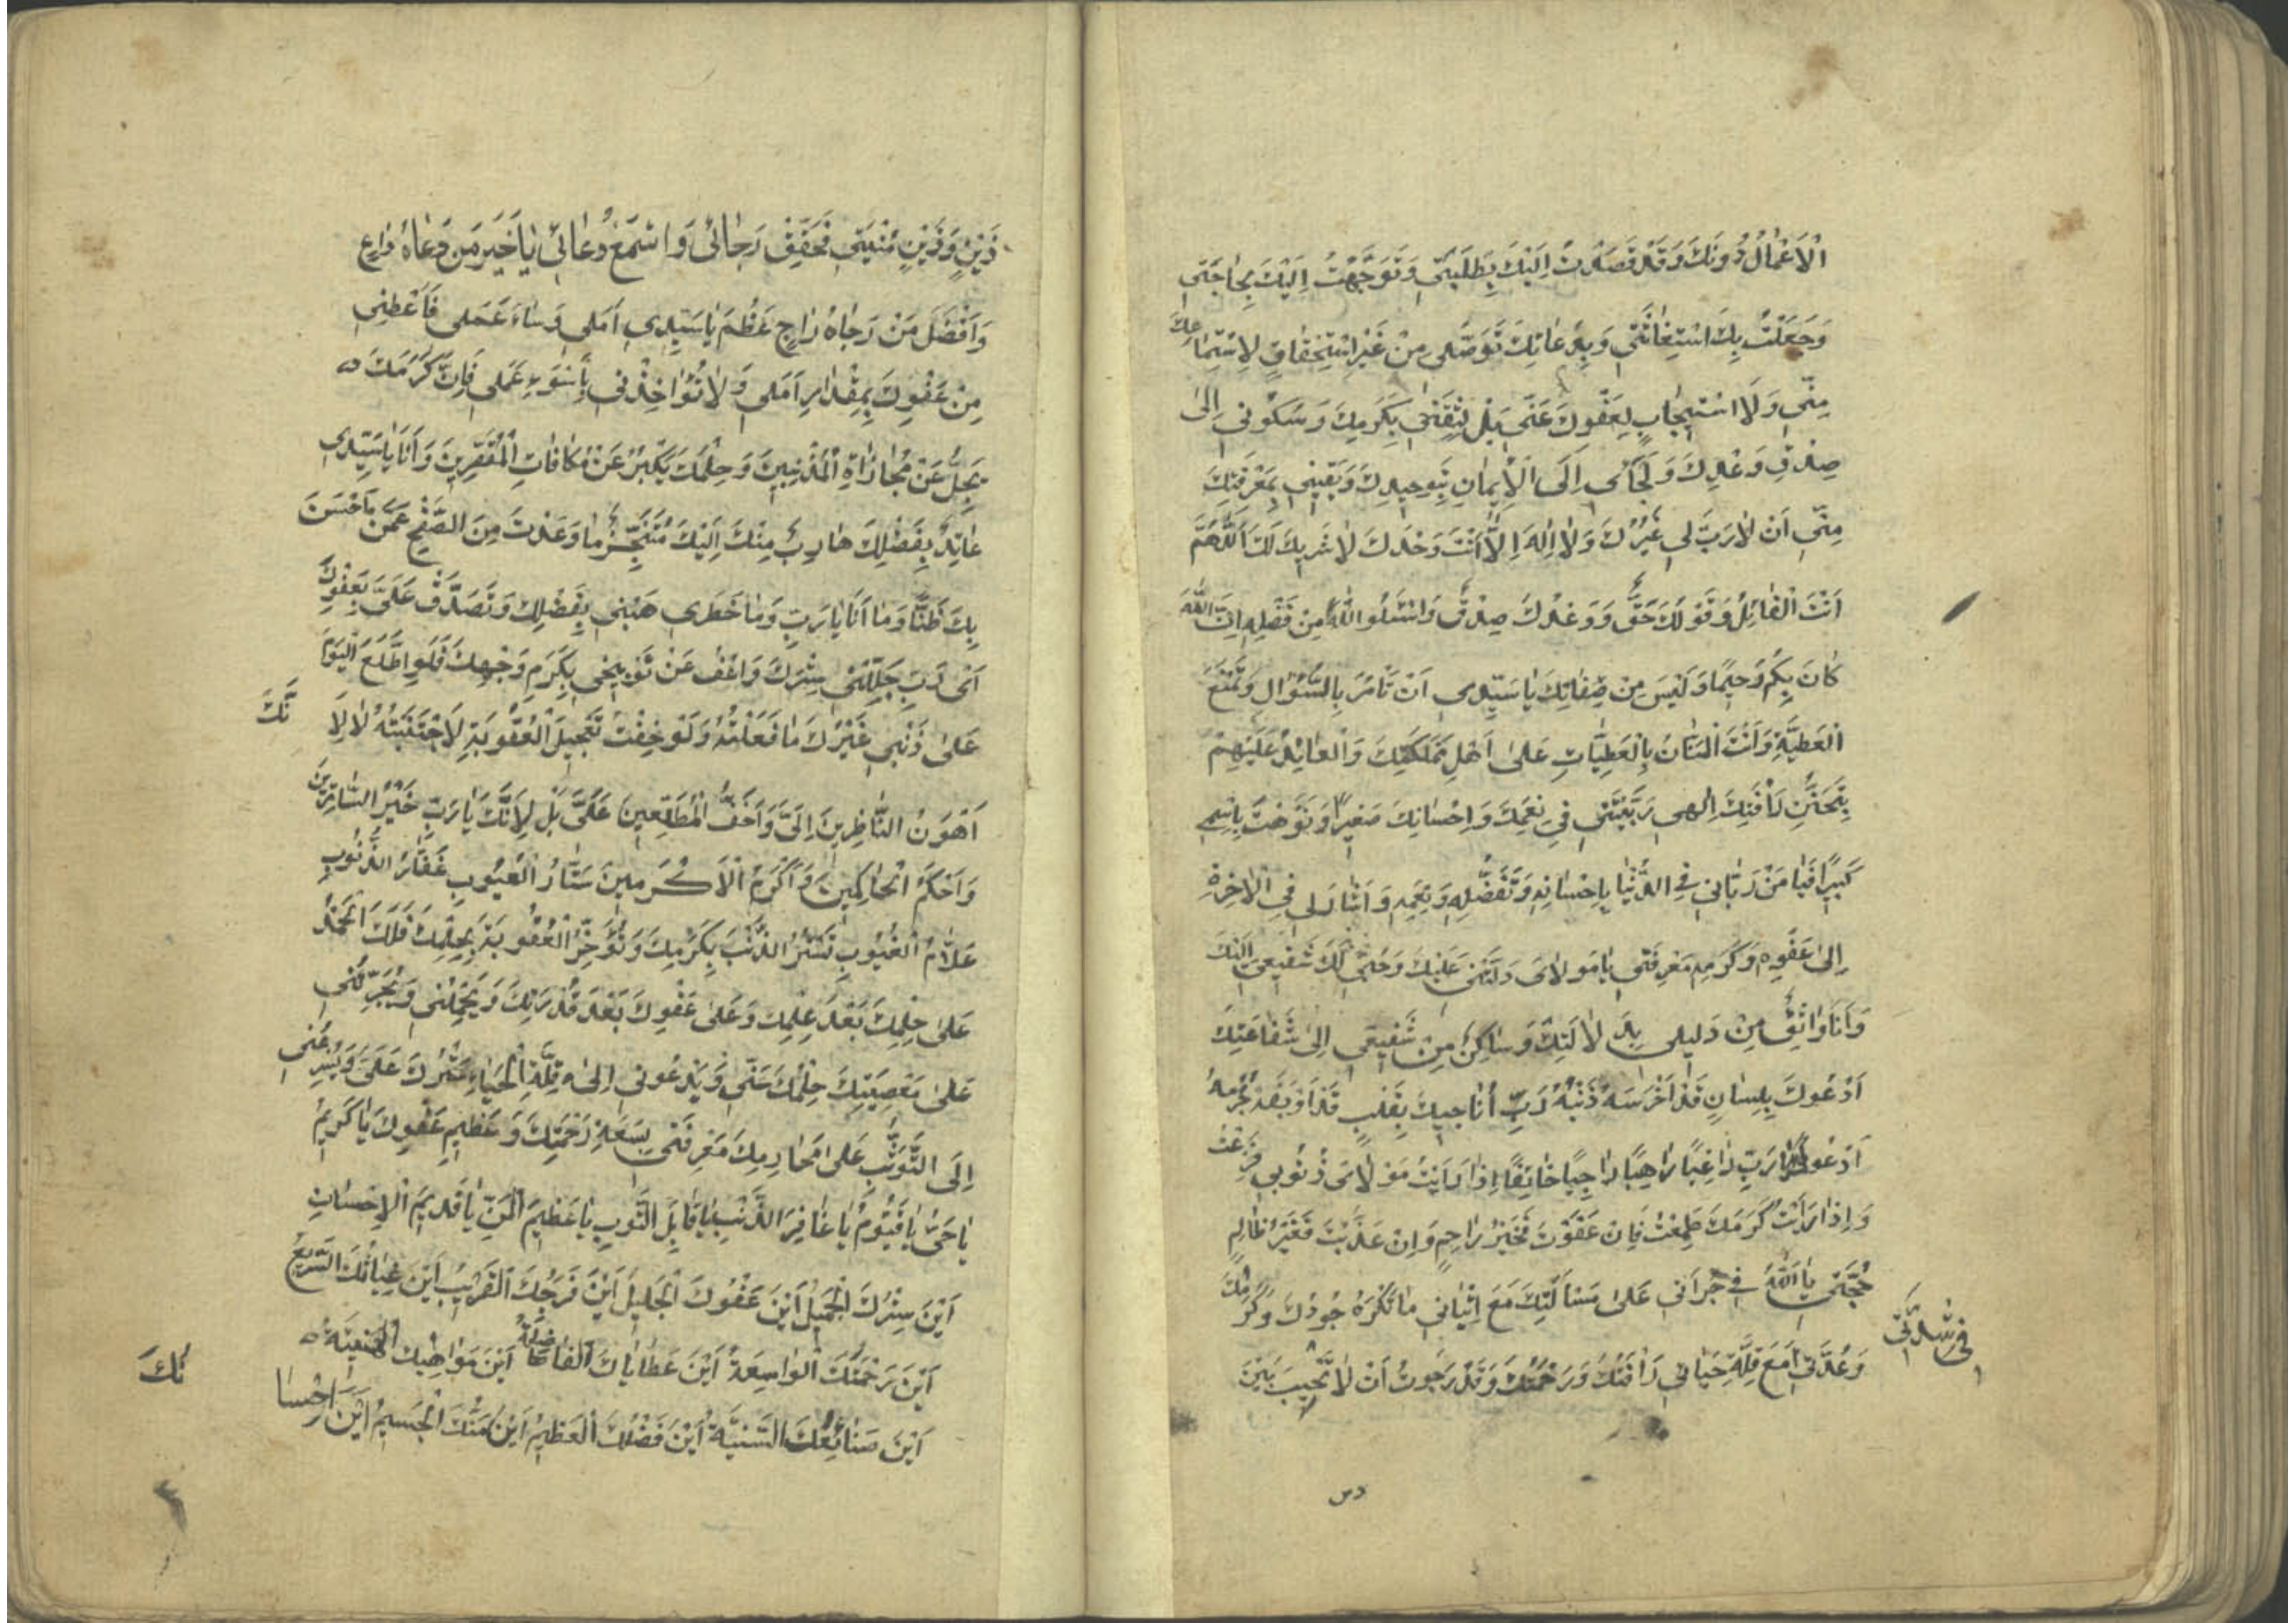 الْاَعْمٰالُ دُونَكَ وَقَدْ قَصَدْتُ اِلَيْكَ بِطَلِبَتِي وَتَوَجَّهْتُ اِلَيْكَ بِحٰاجَتِي
وَجَعَلْتُ بِكَ اسْتِغٰاثَتِي وَبِدُعٰائِكَ تَوَسُّلِي مِنْ غَيْرِ اسْتِحْقٰاقٍ لِاسْتِمٰاعِكَ
مِنّي وَلَا اسْتيجٰابٍ لِعَفْوِكَ عَنّي بَلْ لِثِقَتي بِكَرَمِكَ وَسُكُوني اِلىٰ
صِدْقِ وَعْدِكَ وَلَجَائي اِلَى الْاِيمٰانِ بِتَوحيدِكَ وَيَقيني بِمَعْرِفَتِكَ
مِنّي اَنْ لٰا رَبَّ لي غَيْرُكَ وَلٰا اِلٰهَ اِلّٰا اَنْتَ وَحْدَكَ لٰا شَريكَ لَكَ اَللّٰهُمَّ
اَنْتَ الْقٰائِلُ وَقَوْلُكَ حَقٌّ وَوَعْدُكَ صِدْقٌ وَاسْئَلُوا اللّٰهَ مِنْ فَضْلِهِ اِنَّ اللّٰهَ
كٰانَ بِكُمْ رَحيمًا وَلَيْسَ مِنْ صِفٰاتِكَ يٰا سَيِّدي اَنْ تَأْمُرَ بِالسُّؤٰالِ وَتَمْنَعَ
الْعَطِيَّةَ وَاَنْتَ الْمَنّٰانُ بِالْعَطِيّٰاتِ عَلىٰ اَهْلِ مَمْلَكَتِكَ وَالْعٰائِدُ عَلَيْهِمْ
بِتَحَنُّنِ رَأْفَتِكَ اِلٰهي رَبَّيْتَني في نِعَمِكَ وَاِحْسٰانِكَ صَغيرًا وَنَوَّهْتَ بِاسْمي
كَبيرًا فَيٰا مَنْ رَبّٰاني فِي الدُّنْيٰا بِاِحْسٰانِهِ وَتَفَضُّلِهِ وَنِعَمِهِ وَاَشٰارَ لي فِي الْاٰخِرَةِ
اِلىٰ عَفْوِهِ وَكَرَمِهِ مَعْرِفَتي يٰا مَوْلٰايَ دَلَّتْني عَلَيْكَ وَحُبّي لَكَ شَفيعي اِلَيْكَ
وَاَنَا وٰاثِقٌ مِنْ دَليلي بِدَلٰالَتِكَ وَسٰاكِنٌ مِنْ شَفيعي اِلىٰ شَفٰاعَتِكَ
اَدْعُوكَ بِلِسٰانٍ قَدْ اَخْرَسَهُ ذَنْبُهُ رَبِّ اُنٰاجيكَ بِقَلْبٍ قَدْ اَوْبَقَهُ جُرْمُهُ
اَدْعُوكَ يٰا رَبِّ رٰاغِبًا رٰاهِبًا رٰاجِيًا خٰائِفًا اِذٰا رَاَيْتُ مَوْلٰايَ ذُنُوبي فَزِعْتُ
وَاِذٰا رَاَيْتُ كَرَمَكَ طَمِعْتُ فَاِنْ عَفَوْتَ فَخَيْرُ رٰاحِمٍ وَاِنْ عَذَّبْتَ فَغَيْرُ ظٰالِمٍ
حُجَّتي يٰا اَللّٰهُ في جُرْأَتي عَلىٰ مَسْأَلَتِكَ مَعَ اِتْيٰاني مٰا تَكْرَهُ جُودُكَ وَكَرَمُكَ
في شِدَّتي
وَعُدَّتي مَعَ قِلَّةِ حَيٰائي رَأْفَتُكَ وَرَحْمَتُكَ وَقَدْ رَجَوتُ اَنْ لٰا تُخَيِّبَ بَيْنَ
ذَيْنِ وَذَيْنِ مُنْيَتي فَحَقِّقْ رَجٰائي وَاسْمَعْ دُعٰائي يٰا خَيْرَ مَنْ دَعٰاهُ دٰاعٍ
وَاَفْضَلَ مَنْ رَجٰاهُ رٰاجٍ عَظُمَ يٰا سَيِّدي اَمَلي وَسٰاءَ عَمَلي فَاَعْطِني
مِنْ عَفْوِكَ بِمِقْدٰارِ اَمَلي وَلٰا تُؤٰاخِذْني بِأَسْوَءِ عَمَلي فَاِنَّ كَرَمَكَ
يَجِلُّ عَنْ مُجٰازٰاةِ الْمُذْنِبينَ وَحِلْمَكَ يَكْبُرُ عَنْ مُكٰافٰاتِ الْمُقَصِّرينَ وَاَنَا يٰا سَيِّدي
عٰائِذٌ بِفَضْلِكَ هٰارِبٌ مِنْكَ اِلَيْكَ مُتَنَجِّزٌ مٰا وَعَدْتَ مِنَ الصَّفْحِ عَمَّنْ اَحْسَنَ
بِكَ ظَنًّا وَمٰا اَنَا يٰا رَبِّ وَمٰا خَطَري هَبْني بِفَضْلِكَ وَتَصَدَّقْ عَلَيَّ بِعَفْوِكَ
اَىْ رَبِّ جَلِّلْني بِسِتْرِكَ وَاعْفُ عَنْ تَوْبيخي بِكَرَمِ وَجْهِكَ فَلَوِ اطَّلَعَ الْيَوْمَ
عَلىٰ ذَنْبي غَيْرُكَ مٰا فَعَلْتُهُ وَلَوْ خِفْتُ تَعْجيلَ الْعُقُوبَةِ لَاجْتَنَبْتُهُ لٰا لِاَ
نَّكَ
اَهْوَنُ النّٰاظِرينَ اِلَيَّ وَاَخَفُّ الْمُطَّلِعينَ عَلَيَّ بَلْ لِاَنَّكَ يٰا رَبِّ خَيْرُ السّٰاتِرينَ
وَاَحْكَمُ الْحٰاكِمينَ وَاَكْرَمُ الْاَكْرَمينَ سَتّٰارُ الْعُيُوبِ غَفّٰارُ الذُّنُوبِ
عَلّٰامُ الْغُيُوبِ تَسْتُرُ الذَّنْبَ بِكَرَمِكَ وَتُؤَخِّرُ الْعُقُوبَةَ بِحِلْمِكَ فَلَكَ الْحَمْدُ
عَلىٰ حِلْمِكَ بَعْدَ عِلْمِكَ وَعَلىٰ عَفْوِكَ بَعْدَ قُدْرَتِكَ وَيَحْمِلُني وَيُجَرِّئُني
عَلىٰ مَعْصِيَتِكَ حِلْمُكَ عَنّي وَيَدْعُوني اِلىٰ قِلَّةِ الْحَيٰاءِ سَتْرُكَ عَلَيَّ وَيُسْرِعُني
اِلَى التَّوَثُّبِ عَلىٰ مَحٰارِمِكَ مَعْرِفَتي بِسَعَةِ رَحْمَتِكَ وَعَظيمِ عَفْوِكَ يٰا كَريمُ
يٰا حَيُّ يٰا قَيُّومُ يٰا غٰافِرَ الذَّنْبِ يٰا قٰابِلَ التَّوبِ يٰا عَظيمَ الْمَنِّ يٰا قَديمَ الْاِحْسٰانِ
اَيْنَ سِتْرُكَ الْجَميلُ اَيْنَ عَفْوُكَ الْجَليلُ اَيْنَ فَرَجُكَ الْقَريبُ اَيْنَ غِيٰاثُكَ السَّريعُ
اَيْنَ رَحْمَتُكَ الْوٰاسِعَةُ اَيْنَ عَطٰايٰاكَ الْفٰاضِلَةُ اَيْنَ مَوٰاهِبُكَ الْهَنيئَةُ
اَيْنَ صَنٰائِعُكَ السَّنِيَّةُ اَيْنَ فَضْلُكَ الْعَظيمُ اَيْنَ مَنُّكَ الْجَسيمُ اَيْنَ اِحْسٰا
نُكَ